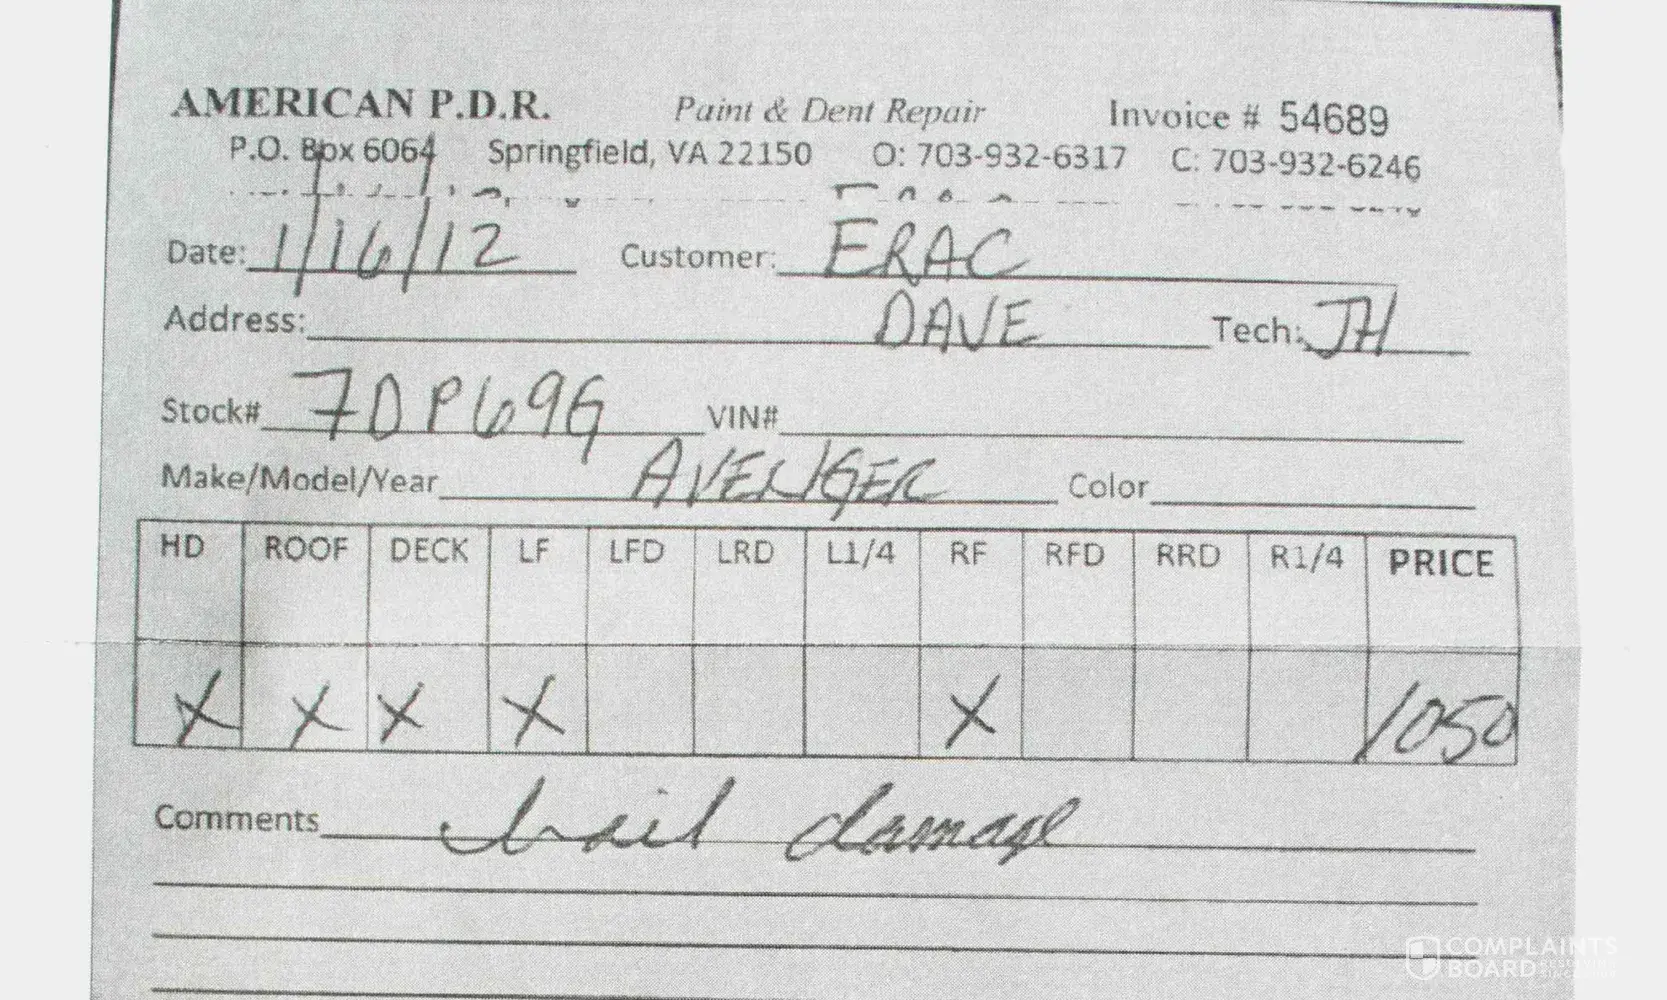 AMERICAN P.D.R. Paint & Dent Repair Invoice # 54689
P.O. Box 6064 Springfield, VA 22150 O: 703-932-6317 C: 703-932-6246
Date: 1/16/12 Customer: ERAC
Address: DAVE Tech: JH
Stock# 7DP69G VIN#
Make/Model/Year AVENGER Color
HD ROOF DECK LF LFD LRD L1/4 RF RFD RRD R1/4 PRICE
X X X X X 1050
Comments hail damage
COMPLAINTS
BOARD